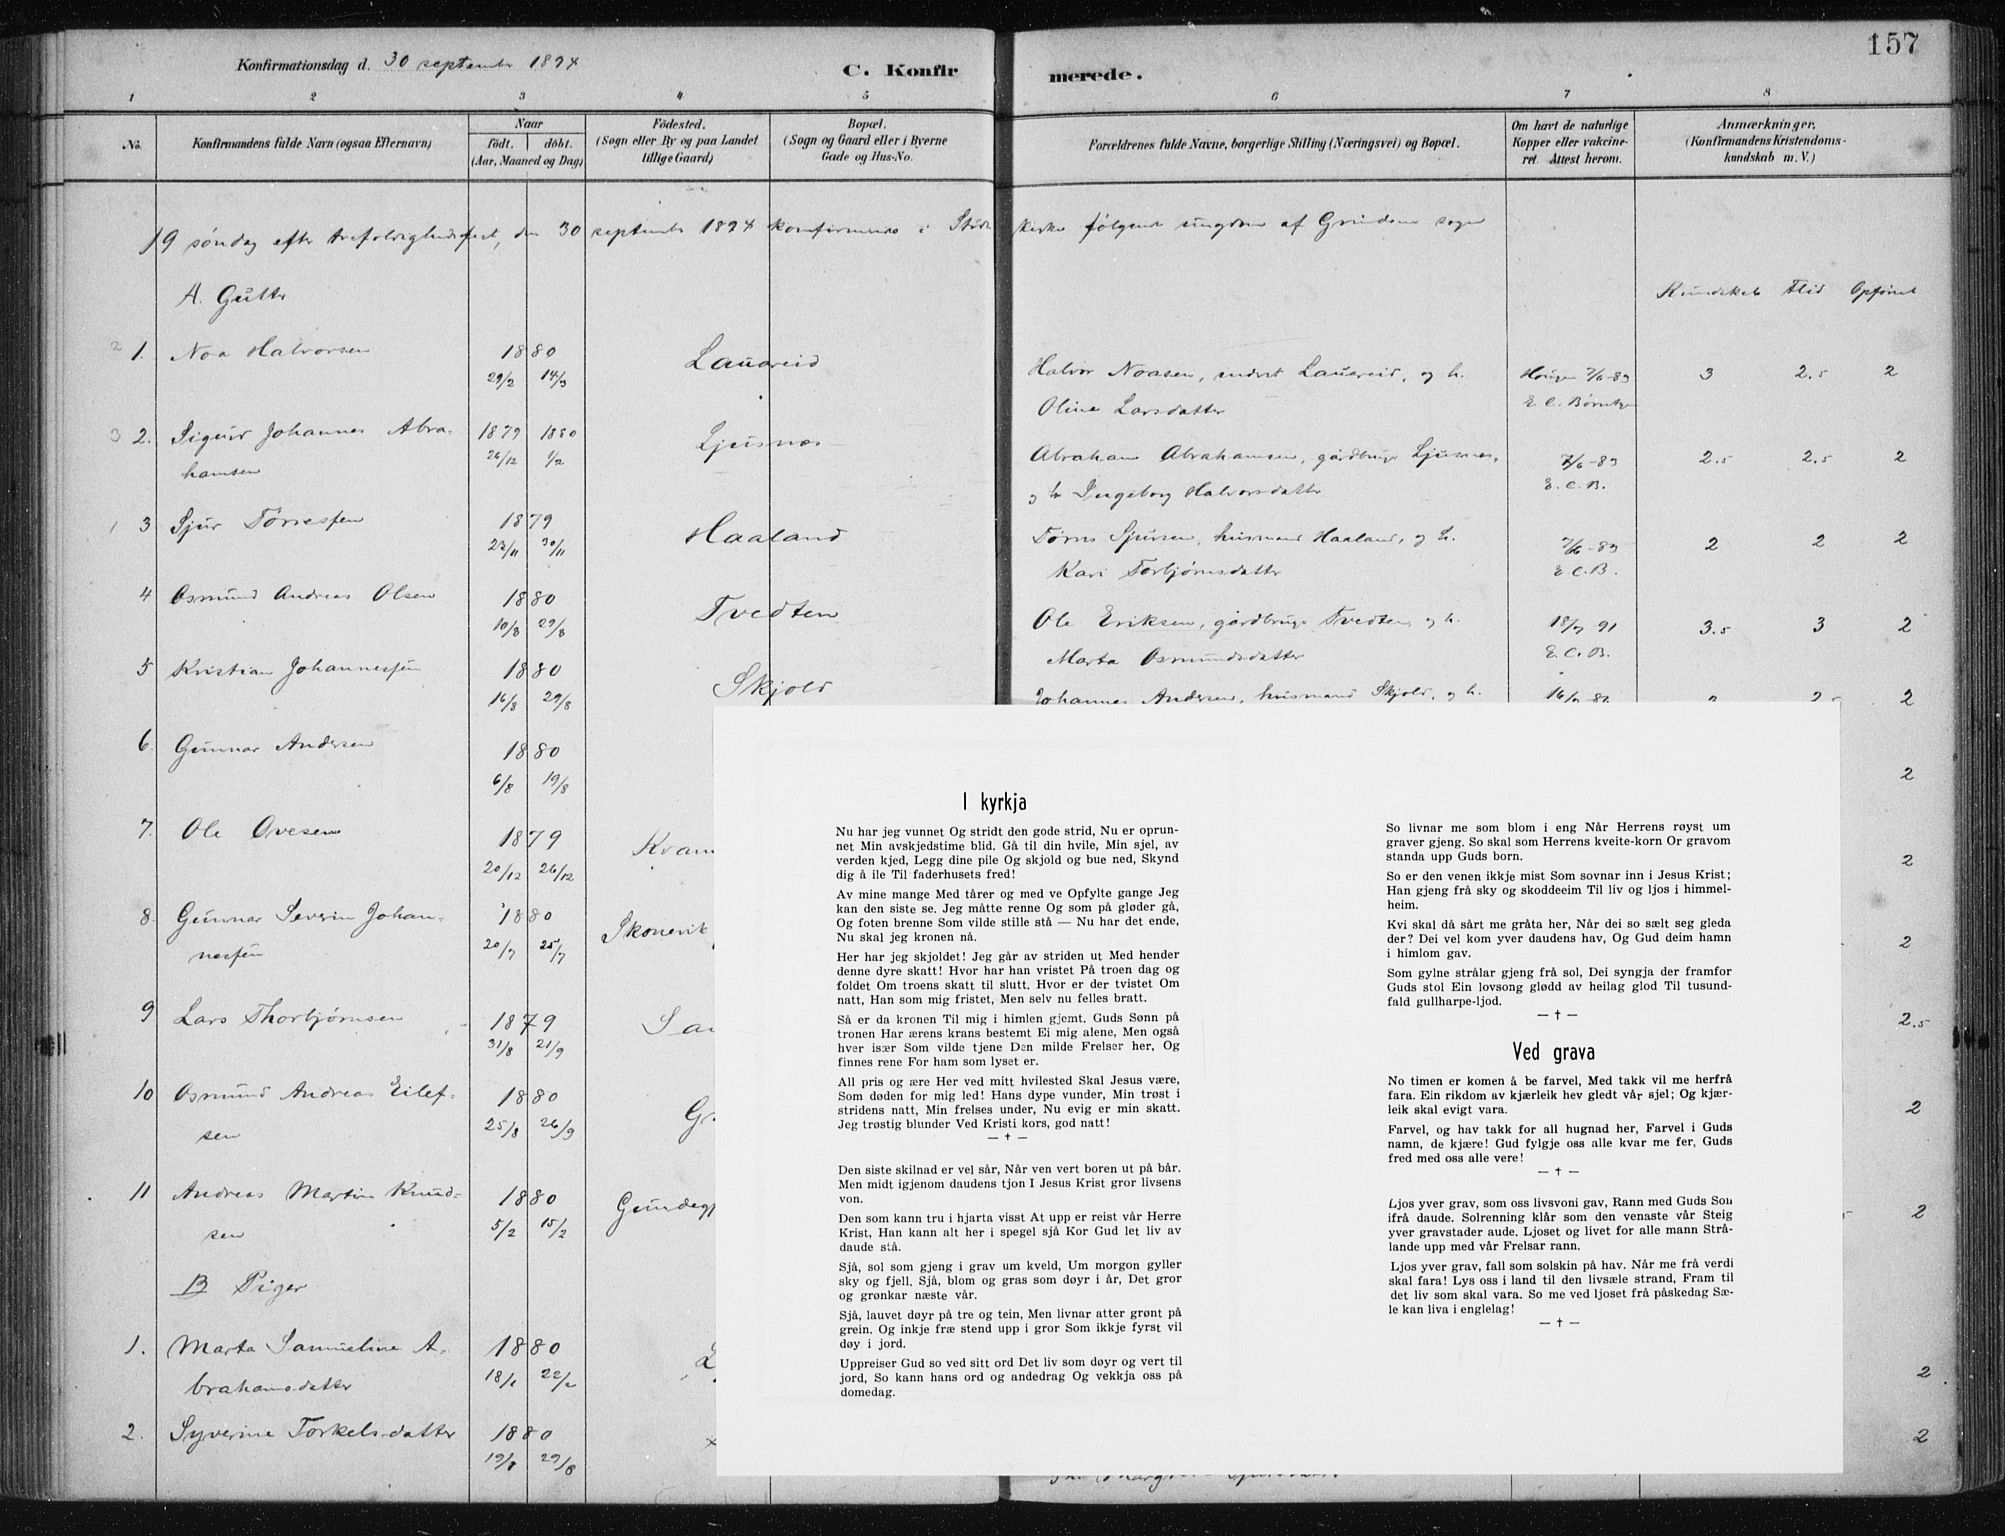 157
Konfirmationsdag d. 30 september 1894
C. Konfirmerede.
1 2 3 4 5 6 7 8
No.
Konfirmandens fulde Navn (ogsaa Efternavn)
Naar
födt. döbt.
(Aar, Maaned og Dag)
Födested.
(Sogn eller By og paa Landet
tillige Gaard)
Bopæl.
(Sogn og Gaard eller i Byerne
Gade og Hus-No.
Forældrenes fulde Navne, borgerlige Stilling (Næringsvei) og Bopæl.
Om havt de naturlige
Kopper eller vakcine-
ret. Attest herom.
Anmærkninger.
(Konfirmandens Kristendoms-
kundskab m. V.)
19 søndag efter trefoldighedsfest, den 30 september 1894 konfirmeres i kirke følgende ungdom af Grindem sogn
A. Gutter
Kundskab Flid Opførsel
1. Noa Halvorsen 1880 Lauareid
29/2 14/3
Halvor Noasen, inderst Lauareid, og h. 7/6-83 3 2.5 2
Oline Larsdatter
2. Sigurd Johannes Abra- 1879 1880 Ljusnes
hamsen 26/12 1/2
Abraham Abrahamsen, gårdbruger Ljusnes, 7/6-83 2.5 2.5 2
og h. Ingeborg Halvorsdatter E. C. B.
3 Sjur Tørresen 1879 Haaland
23/11 30/11
Tørres Sjursen, husmand Haaland, og h. 7/6-83 2 2 2
Kari Torbjørnsdatter E. C. B.
4 Osmund Andreas Olsen 1880 Tvedten
10/8 29/8
Ole Eriksen, gårdbruger Tvedten, og h. 91 3.5 3 2
Marta Osmundsdatter E. C. B.
5 Kristian Johannesen 1880 Skjold
16/8 29/8
Johannes Andersen, husmand Skjold, og h. 2
6. Gunnar Andersen 1880 2
6/8 19/8
7. Ole Ovesen 1879 Kvam 2
20/12 26/12
8. Gunnar Severin Johan- 1880 Skonevik 2
nesen 20/7 25/7
9 Lars Thorbjørnsen 1879 2.5
31/8 21/9
10 Osmund Andreas Eilef- 1880 2
sen 25/8 26/9
11 Andreas Martin Knud- 1880 2
sen 5/2 15/2
B Piger
1. Marta Samueline A- 1880 2
brahamsdatter 18/1 22/2
2. Syverine Torkelsdatter 1880 2
19/8 29/8
I kyrkja
Nu har jeg vunnet Og stridt den gode strid, Nu er oprun-
net Min avskjedstime blid. Gå til din hvile, Min sjel, av
verden kjed, Legg dine pile Og skjold og bue ned, Skynd
dig å ile Til faderhusets fred!
Av mine mange Med tårer og med ve Opfylte gange Jeg
kan den siste se. Jeg måtte renne Og som på gløder gå,
Og foten brenne Som vilde stille stå — Nu har det ende,
Nu skal jeg kronen nå.
Her har jeg skjoldet! Jeg går av striden ut Med hender
denne dyre skatt! Hvor har han vristet På troen dag og
foldet Om troens skatt til slutt. Hvor er der tvistet Om
natt, Han som mig fristet, Men selv nu felles bratt.
Så er da kronen Til mig i himlen gjemt. Guds Sønn på
tronen Har ærens krans bestemt Ei mig alene, Men også
hver især Som vilde tjene Den milde Frelser her, Og
finnes rene For ham som lyset er.
All pris og ære Her ved mitt hvilested Skal Jesus være,
Som døden for mig led! Hans dype vunder, Min trøst i
stridens natt, Min frelses under, Nu evig er min skatt.
Jeg trøstig blunder Ved Kristi kors, god natt!
— † —
Den siste skilnad er vel sår, Når ven vert boren ut på bår.
Men midt igjenom daudens tjon I Jesus Krist gror livsens
von.
Den som kann tru i hjarta visst At upp er reist vår Herre
Krist, Han kann alt her i spegel sjå Kor Gud let liv av
daude stå.
Sjå, sol som gjeng i grav um kveld, Um morgon gyller
sky og fjell. Sjå, blom og gras som døyr i år, Det gror
og grønkar næste vår.
Sjå, lauvet døyr på tre og tein, Men livnar atter grønt på
grein. Og inkje fræ stend upp i gror Som ikkje fyrst vil
døy i jord.
Uppreiser Gud so ved sitt ord Det liv som døyr og vert til
jord, So kann hans ord og andedrag Og vekkja oss på
domedag.
So livnar me som blom i eng Når Herrens røyst um
graver gjeng. So skal som Herrens kveite-korn Or gravom
standa upp Guds born.
So er den venen ikkje mist Som sovnar inn i Jesus Krist;
Han gjeng frå sky og skoddeeim Til liv og ljos i himmel-
heim.
Kvi skal då sårt me gråta her, Når dei so sælt seg gleda
der? Dei vel kom yver daudens hav, Og Gud deim hamn
i himlom gav.
Som gylne strålar gjeng frå sol, Dei syngja der framfor
Guds stol Ein lovsong glødd av heilag glod Til tusund-
fald gullharpe-ljod.
— † —
Ved grava
No timen er komen å be farvel, Med takk vil me herfrå
fara. Ein rikdom av kjærleik hev gledt vår sjel; Og kjær-
leik skal evigt vara.
Farvel, og hav takk for all hugnad her, Farvel i Guds
namn, de kjære! Gud fylgje oss alle kvar me fer, Guds
fred med oss alle vere!
— † —
Ljos yver grav, som oss livsvoni gav, Rann med Guds Son
ifrå daude. Solrenning klår som den venaste vår Steig
yver gravstader aude. Ljoset og livet for alle mann Strå-
lande upp med vår Frelsar rann.
Ljos yver grav, fall som solskin på hav. Når me frå verdi
skal fara! Lys oss i land til den livsæle strand, Fram til
det liv som skal vara. So me ved ljoset frå påskedag Sæ-
le kan liva i englelag!
— † —